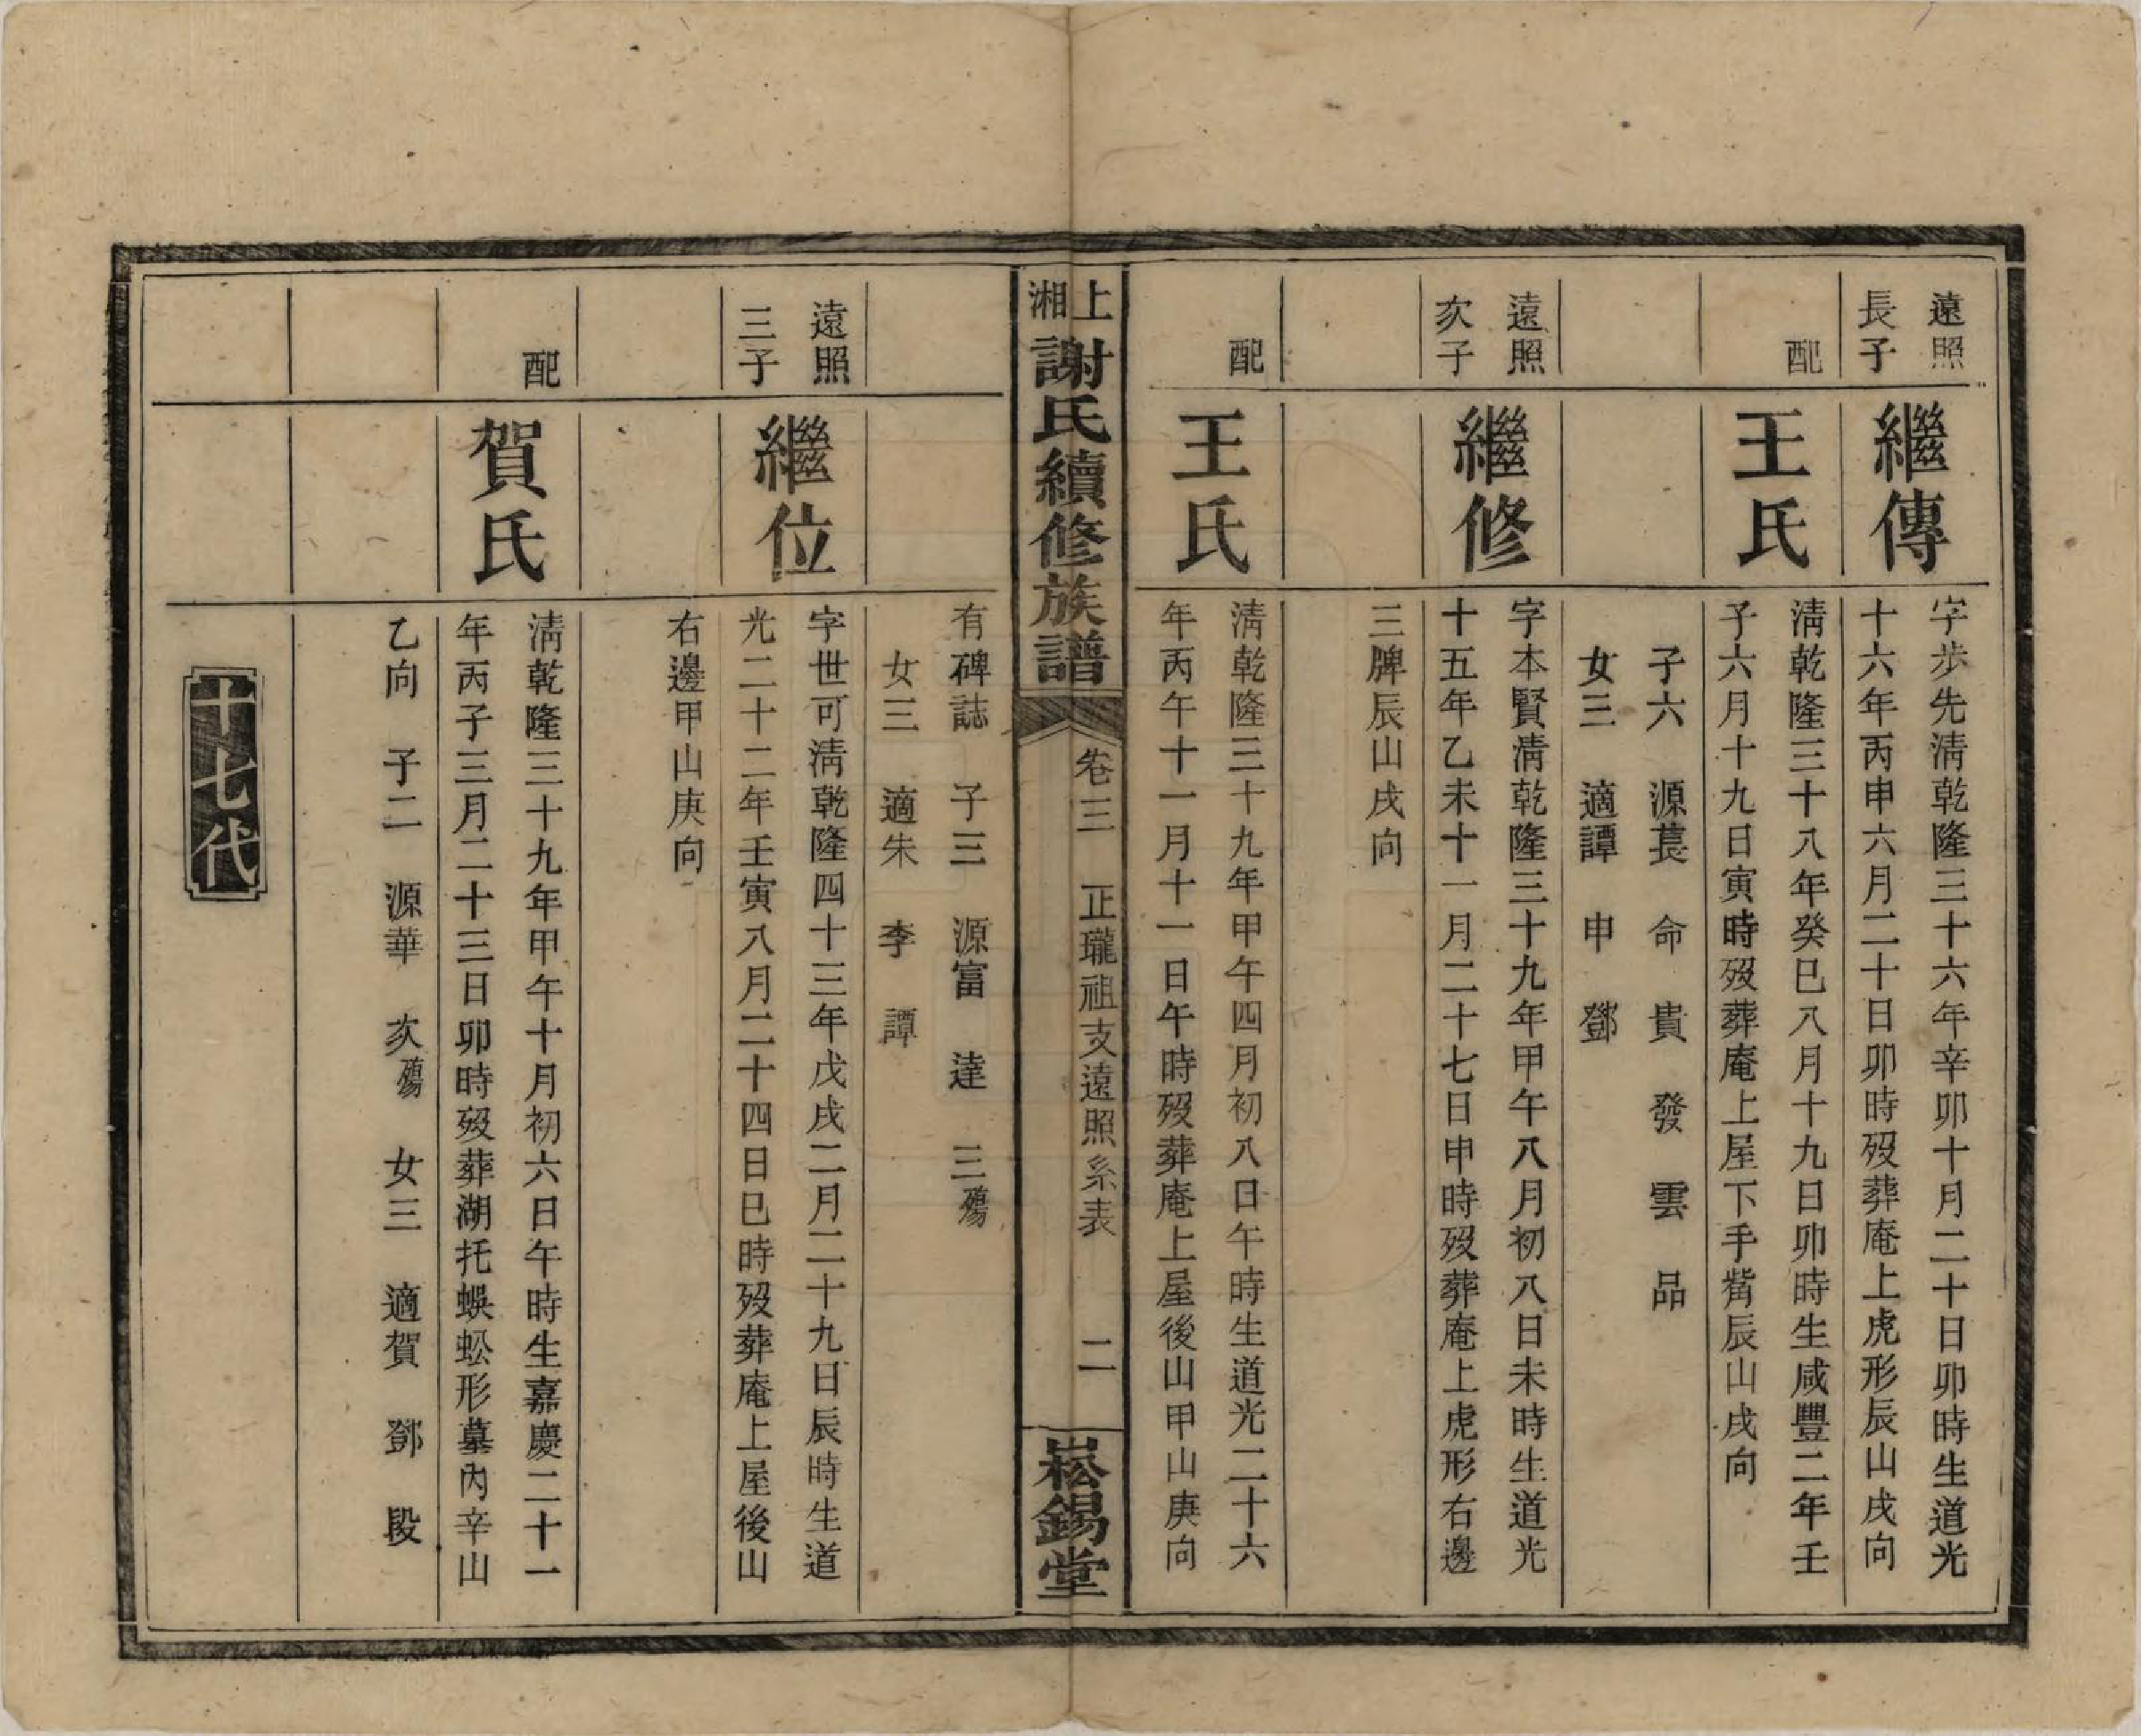 遠照
長子
繼傳
字步先淸乾隆三十六年辛卯十月二十日卯時生道光
十六年丙申六月二十日卯時歿葬庵上虎形辰山戌向
配
王氏
淸乾隆三十八年癸巳八月十九日卯時生咸豐二年壬
子六月十九日寅時歿葬庵上屋下手觜辰山戌向
子六 源萇 命 貴 發 雲 品
女三 適譚 申 鄧
遠照
次子
繼修
字本賢淸乾隆三十九年甲午八月初八日未時生道光
十五年乙未十一月二十七日申時歿葬庵上虎形右邊
三牌辰山戌向
配
王氏
淸乾隆三十九年甲午四月初八日午時生道光二十六
年丙午十一月十一日午時歿葬庵上屋後山甲山庚向
上湘謝氏續修族譜
卷三 正瓏祖支遠照系表 二
崧錫堂
有碑誌 子三 源富 達 三殤
女三 適朱 李 譚
遠照
三子
繼位
字世可淸乾隆四十三年戊戌二月二十九日辰時生道
光二十二年壬寅八月二十四日巳時歿葬庵上屋後山
右邊甲山庚向
配
賀氏
淸乾隆三十九年甲午十月初六日午時生嘉慶二十一
年丙子三月二十三日卯時歿葬湖托蜈蚣形墓內辛山
乙向 子二 源華 次殤 女三 適賀 鄧 段
十七代